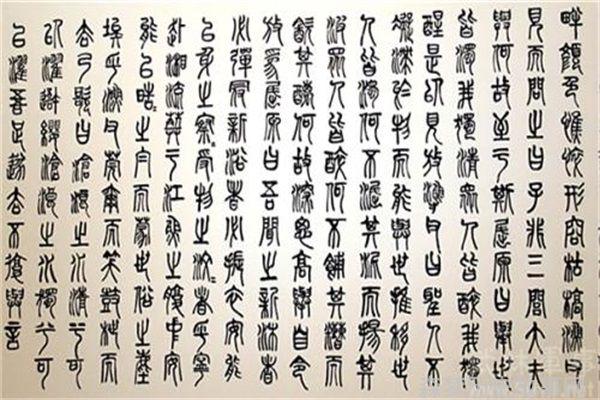 畔顏色憔悴形容枯槁漁父
見而問之曰子非三閭大夫
與何故至于斯屈原曰舉世
皆濁我獨清衆人皆醉我獨
醒是以見放漁父曰聖人不
凝滯於物而能與世推移世
人皆濁何不淈其泥而揚其
波衆人皆醉何不餔其糟而
歠其醨何故深思高舉自令
放為屈原曰吾聞之新沐者
必彈冠新浴者必振衣安能
以身之察=受物之汶=者乎寧
赴湘流葬于江魚之腹中安
能以晧=之白而蒙世俗之塵
埃乎漁父莞爾而笑鼓枻而
去乃歌曰滄浪之水清兮可
以濯吾纓滄浪之水濁兮可
以濯吾足遂去不復與言